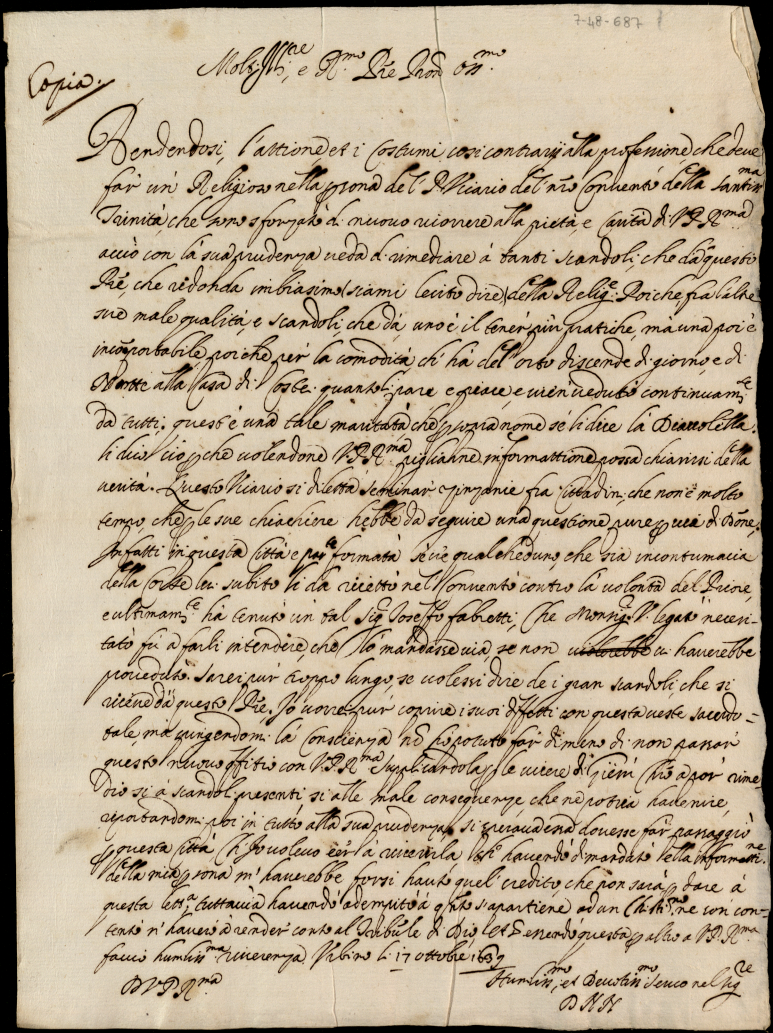 7-48-687
Copia.
Molt. Ill.tre, e R.mo Pre Pron Oss.mo
Rendendosi, l'attione, et i Costumi cosi contrarij alla professione che deve
far un' Religioso nella psona del P. Vicario del nro Convento della Santiss.ma
Trinità che sono sforzato di nuovo ricorrere alla pietà, e Carità di V.P.R.ma
acciò con la sua prudenza veda di rimediare à tanti scandoli, che dà questo
Pre, che redonda in biasimo (sciami lecito dire) della Relig.e Poiche fra l'altre
sue male qualità, e scandoli, che dà, uno è il tener più pratiche, mà una poi è
insoportabile poiche per la comodità ch' hà dell'orto discende di giorno, e di
Notte alla Casa di Coste. quanto li pare e piace, e vien veduto continuam.te
da tutti; questa è una tale maritata che p sopra nome se li dice la Diavoletta.
li dico ciò, che volendone V.P.R.ma pigliarne informattione possa chiarirsi della
verità. Questo Vicario si diletta seminar zinzanie fra Cittadini, che non è molto
tempo, che p le sue chiachiere hebbe da seguire una questione pure p via di Done,
Infatti in questa Città e formata se vi è qualcheduno, che sia in contumacia
della Corte lui subito li da ricetto nel Convento contro la volontà del Priore,
e ultimam.te hà tenuto un tal Sig. Joseffo fabretti, che Monsig.r V. legato necessi-
tato fù a farli intendere, che lo mandasse via, se non vi haverebbe
proveduto. Sarei pur troppo lungo, se volessi dire de i gran scandoli, che si
riceve dà questo Pre. Io vorrei pur' coprire i suoi diffetti con questa veste sacerdo=
tale, mà pungendomi la Conscienza nō hò potuto far di meno di non passar
questo nuovo offitio con V.P.R.ma Suplicandola p le viscere di Giesù Chro à por rime=
dio si à scandoli presenti, si alle male conseguenze, che ne potria havenire,
riportandomi poi in tutto alla sua prudenza
p questa Città havendo dimandato della informatt.ne
della mia psona m' haverebbe forsi hauto quel credito, che non sarà p dare à
questa lett.a tuttavia havendo adempito à qto s'apartiene ad un Chr.no ne son con-
tento n' haverò à render conto al Tribule di Dio et p altro a V.P.R.ma
faccio humiliss.ma riverenza Urbino li 17 ottobre 1639
D V.P.R.ma
Humiliss.mo et Devotiss.mo Servo nel Sig.re
D N N